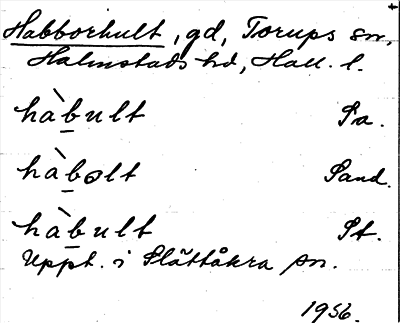 Habborhult, gd, Torups sn,
Halmstads hd, Hall. l.
hàb̲ult Sa.
hàb̲ølt Sand.
hàb̲ult St.
Uppt. i Slättåkra sn.
1956.